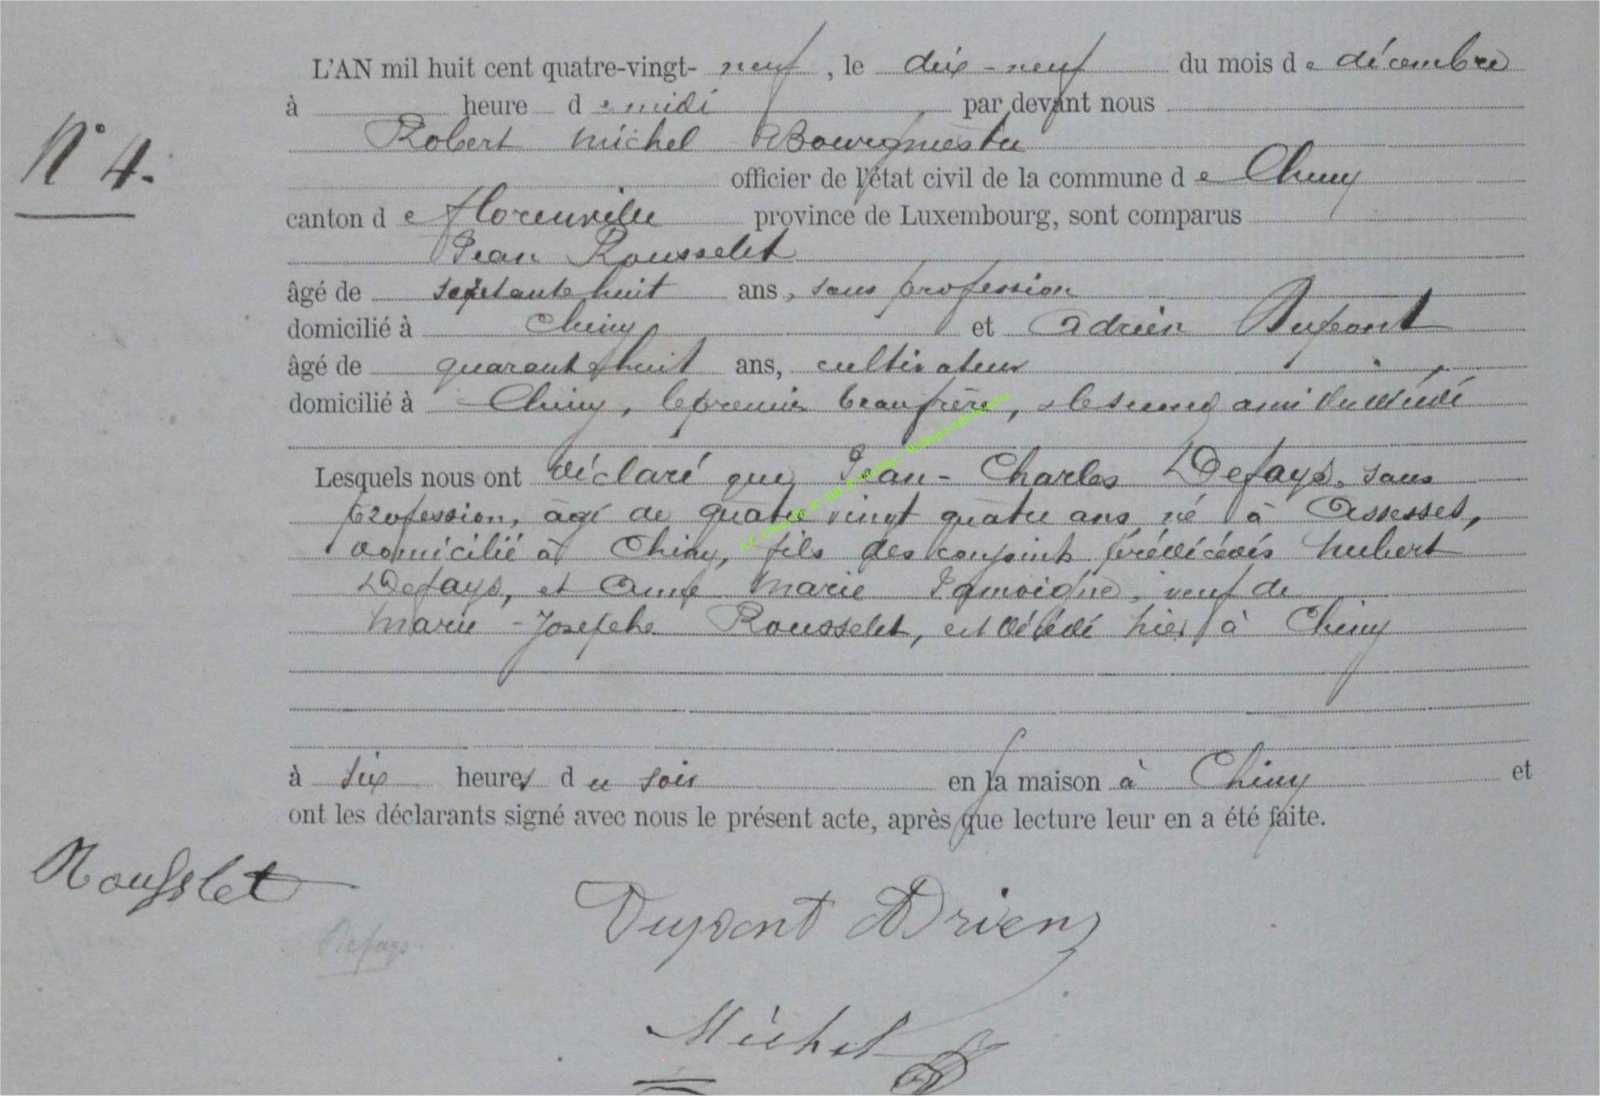 L'AN mil huit cent quatre-vingt- neuf, le dix-neuf du mois de décembre
à heure de midi par devant nous
N° 4.
Robert Michel Bourgmestre
officier de l'état civil de la commune de Chiny
canton de florenville province de Luxembourg, sont comparus
Jean Rousselet
âgé de septante huit ans, sans profession
domicilié à Chiny et Adrien Dupont
âgé de quarante huit ans, cultivateur
domicilié à Chiny, le premier beaufrère, le second ami du décédé
Lesquels nous ont déclaré que Jean-Charles Defays, sans
profession, âgé de quatre vingt quatre ans, né à Assesses,
domicilié à Chiny, fils des conjoints prédécédés hubert
Defays, et Anne Marie veuf de
Marie-Josephe Rousselet, est décédé hier à Chiny
à six heures du soir en la maison à Chiny et
ont les déclarants signé avec nous le présent acte, après que lecture leur en a été faite.
Rousslet
Dupont Adrien
Defays
Michel